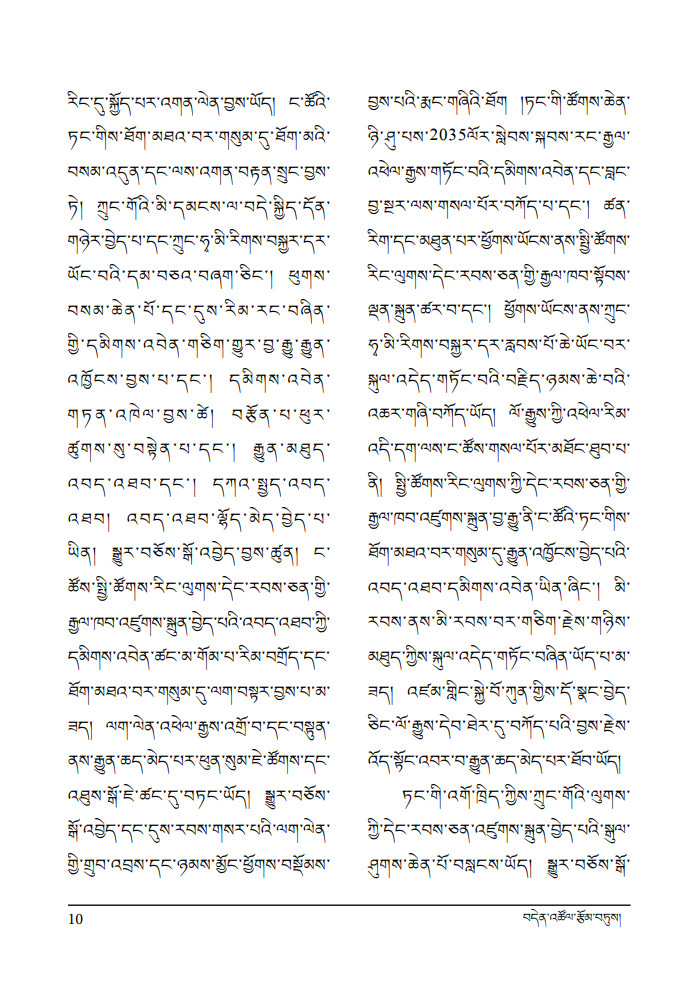 རིང་དུ་སྐྱོད་པར་འགན་ལེན་བྱས་ཡོད། ང་ཚོའི་
ཏང་གིས་ཐོག་མཐའ་བར་གསུམ་དུ་ཐོག་མའི་
བསམ་འདུན་དང་ལས་འགན་བརྟན་སྲུང་བྱས་
ཏེ། ཀྲུང་གོའི་མི་དམངས་ལ་བདེ་སྐྱིད་དོན་
གཉེར་བྱེད་པ་དང་ཀྲུང་ཧྭ་མི་རིགས་བསྐྱར་དར་
ཡོང་བའི་དམ་བཅའ་བཞག་ཅིང་། ཕུགས་
བསམ་ཆེན་པོ་དང་དུས་རིམ་རང་བཞིན་
གྱི་དམིགས་འབེན་གཅིག་གྱུར་བྱ་རྒྱུ་རྒྱུན་
འཁྱོངས་བྱས་པ་དང་། དམིགས་འབེན་
གཏན་འཁེལ་བྱས་ཚེ། བརྩོན་པ་ཕུར་
ཚུགས་སུ་བསྟེན་པ་དང་། རྒྱུན་མཐུད་
འབད་འཐབ་དང་། དཀའ་སྤྱད་འབད་
འཐབ། འབད་འཐབ་ལྷོད་མེད་བྱེད་པ་
ཡིན། སྒྱུར་བཅོས་སྒོ་འབྱེད་བྱས་ཚུན། ང་
ཚོས་སྤྱི་ཚོགས་རིང་ལུགས་དེང་རབས་ཅན་གྱི་
རྒྱལ་ཁབ་འཛུགས་སྐྲུན་བྱེད་པའི་འབད་འཐབ་ཀྱི་
དམིགས་འབེན་ཚང་མ་གོམ་པ་རིམ་བགྲོད་དང་
ཐོག་མཐའ་བར་གསུམ་དུ་ལག་བསྟར་བྱས་པ་མ་
ཟད། ལག་ལེན་འཕེལ་རྒྱས་འགྲོ་བ་དང་བསྟུན་
ནས་རྒྱུན་ཆད་མེད་པར་ཕུན་སུམ་ཇེ་ཚོགས་དང་
འཐུས་སྒོ་ཇེ་ཚང་དུ་བཏང་ཡོད། སྒྱུར་བཅོས་
སྒོ་འབྱེད་དང་དུས་རབས་གསར་པའི་ལག་ལེན་
གྱི་གྲུབ་འབྲས་དང་ཉམས་མྱོང་ཕྱོགས་བསྡོམས་
བྱས་པའི་རྨང་གཞིའི་ཐོག །ཏང་གི་ཚོགས་ཆེན་
ཉི་ཤུ་པས་2035ལོར་སླེབས་སྐབས་རང་རྒྱལ་
འཕེལ་རྒྱས་གཏོང་བའི་དམིགས་འབེན་དང་བླང་
བྱ་སྔར་ལས་གསལ་པོར་བཀོད་པ་དང་། ཚན་
རིག་དང་མཐུན་པར་ཕྱོགས་ཡོངས་ནས་སྤྱི་ཚོགས་
རིང་ལུགས་དེང་རབས་ཅན་གྱི་རྒྱལ་ཁབ་སྟོབས་
ལྡན་སྐྲུན་ཚར་བ་དང་། ཕྱོགས་ཡོངས་ནས་ཀྲུང་
ཧྭ་མི་རིགས་བསྐྱར་དར་རླབས་པོ་ཆེ་ཡོང་བར་
སྐུལ་འདེད་གཏོང་བའི་བརྗིད་ཉམས་ཆེ་བའི་
འཆར་གཞི་བཀོད་ཡོད། ལོ་རྒྱུས་ཀྱི་འཕེལ་རིམ་
འདི་དག་ལས་ང་ཚོས་གསལ་པོར་མཐོང་ཐུབ་པ་
ནི། སྤྱི་ཚོགས་རིང་ལུགས་ཀྱི་དེང་རབས་ཅན་གྱི་
རྒྱལ་ཁབ་འཛུགས་སྐྲུན་བྱ་རྒྱུ་ནི་ང་ཚོའི་ཏང་གིས་
ཐོག་མཐའ་བར་གསུམ་དུ་རྒྱུན་འཁྱོངས་བྱེད་པའི་
འབད་འཐབ་དམིགས་འབེན་ཡིན་ཞིང་། མི་
རབས་ནས་མི་རབས་བར་གཅིག་རྗེས་གཉིས་
མཐུད་ཀྱིས་སྐུལ་འདེད་གཏོང་བཞིན་ཡོད་པ་མ་
ཟད། འཛམ་གླིང་སྐྱེ་བོ་ཀུན་གྱིས་དོ་སྣང་བྱེད་
ཅིང་ལོ་རྒྱུས་དེབ་ཐེར་དུ་བཀོད་པའི་བྱས་རྗེས་
འོད་སྟོང་འབར་བ་རྒྱུན་ཆད་མེད་པར་ཐོབ་ཡོད།
ཏང་གི་འགོ་ཁྲིད་ཀྱིས་ཀྲུང་གོའི་ལུགས་
ཀྱི་དེང་རབས་ཅན་འཛུགས་སྐྲུན་བྱེད་པའི་སྒུལ་
ཤུགས་ཆེན་པོ་བསླངས་ཡོད། སྒྱུར་བཅོས་སྒོ་
10
བདེན་འཚོལ་རྩོམ་བཏུས།